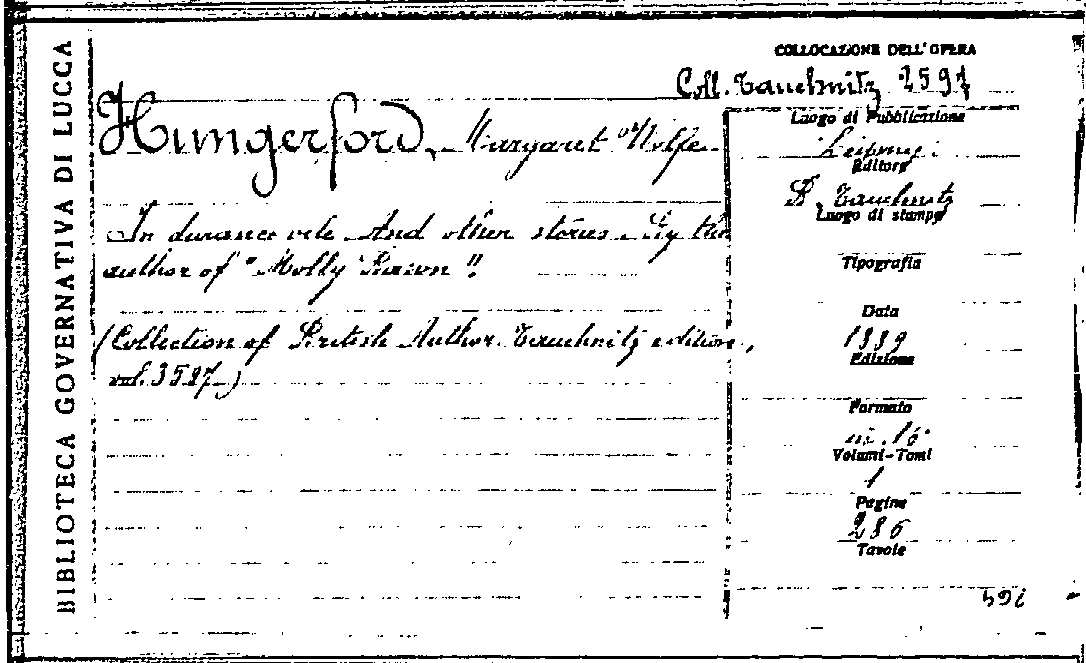 BIBLIOTECA GOVERNATIVA DI LUCCA
COLLOCAZIONE DELL'OPERA
Coll. Tauchnitz 2597
Hungerford, Margaret Wolfe
In durance vile And other stories. By the
author of "Molly Bawn".
(Collection of British Author. Tauchnitz edition,
vol. 3597)
Luogo di Pubblicazione
Leipzig
Editore
B. Tauchnitz
Luogo di stampa
Tipografia
Data
1889
Edizione
Formato
in. 16°
Volumi-Tomi
1
Pagine
286
Tavole